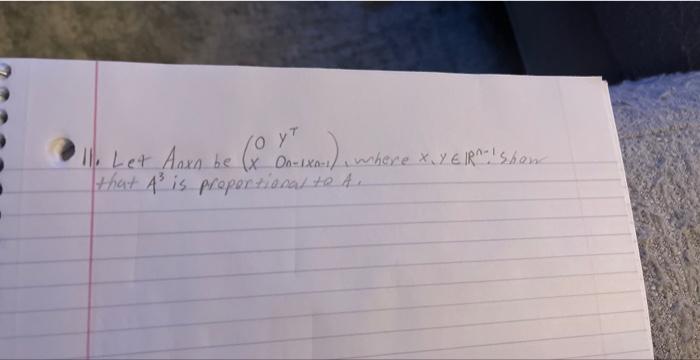 11. Let Anxn be (0 yᵀ
x 0n-1xn-1), where x,y ∈ ℝⁿ⁻¹. Show
that A³ is proportional to A.